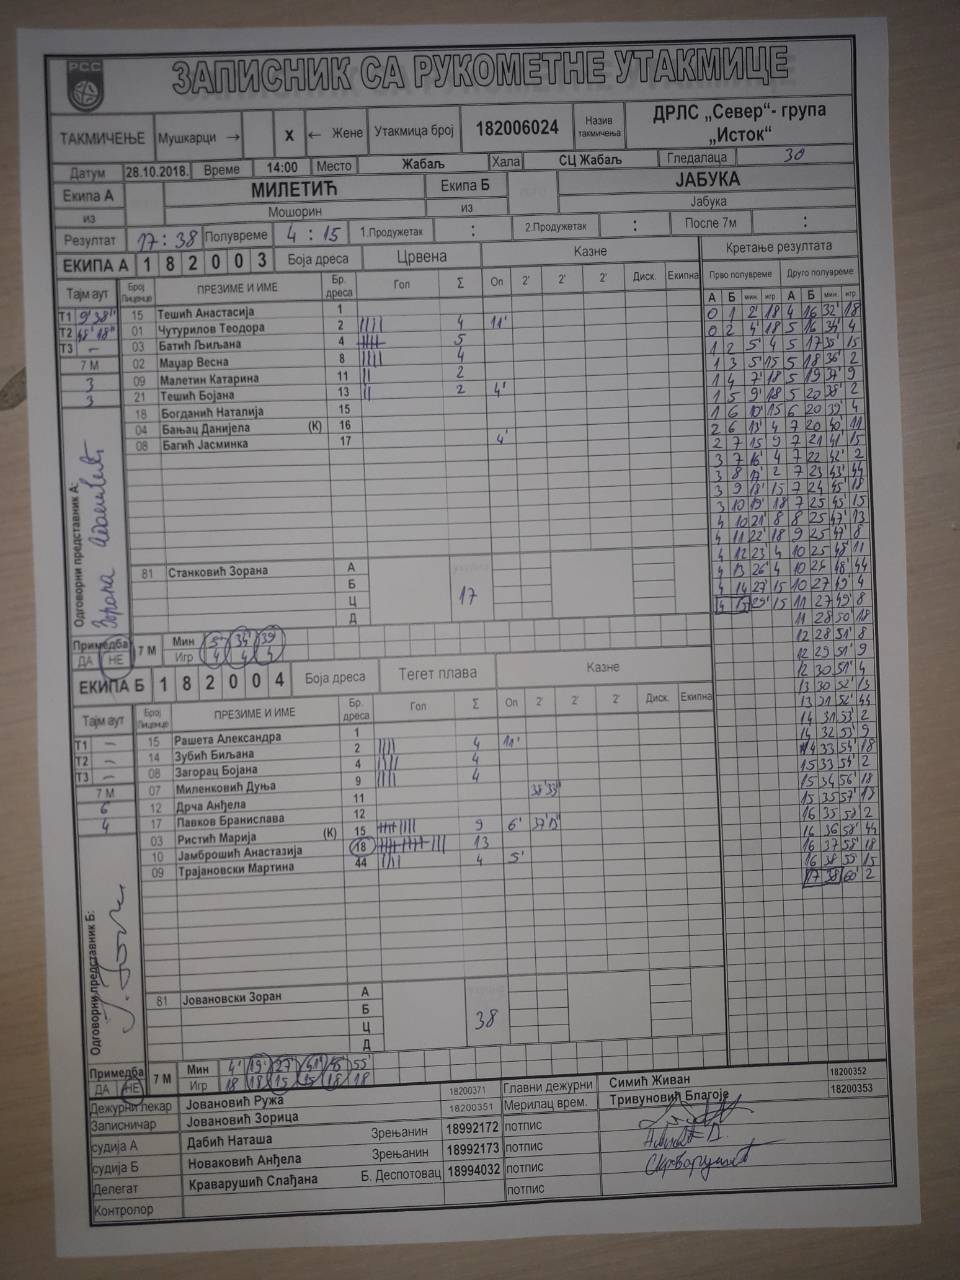 РСС
ЗАПИСНИК СА РУКОМЕТНЕ УТАКМИЦЕ
ТАКМИЧЕЊЕ Мушкарци → X ← Жене Утакмица број 182006024 Назив такмичења ДРЛС „Север“- група „Исток“
Датум 28.10.2018. Време 14:00 Место Жабаљ Хала СЦ Жабаљ Гледалаца 30
Екипа А МИЛЕТИЋ Екипа Б ЈАБУКА
из Мошорин из Јабука
Резултат 17 : 38 Полувреме 4 : 15 1.Продужетак : 2.Продужетак : После 7м :
ЕКИПА А 1 8 2 0 0 3 Боја дреса Црвена Казне Кретање резултата
Тајм аут Број Лиценце ПРЕЗИМЕ И ИМЕ Бр. дреса Гол Σ Оп 2' 2' 2' Диск. Екипна Прво полувреме Друго полувреме
А Б мин. игр А Б мин. игр
Т1 9'38" 15 Тешић Анастасија 1
Т2 48'18" 01 Чутурилов Теодора 2 |||| 4 11'
Т3 - 03 Батић Љиљана 4 5
7 М 02 Маџар Весна 8 |||| 4
3 09 Малетин Катарина 11 || 2
3 21 Тешић Бојана 13 || 2 4'
18 Богданић Наталија 15
04 Бањац Данијела (К) 16
08 Багић Јасминка 17 4'
0 1 2' 18 4 16 32' 18
0 2 4' 18 5 16 34' 4
1 2 5' 4 5 17 35' 15
1 3 5' 15 5 18 36' 2
1 4 7' 18 5 19 37' 9
1 5 9' 18 5 20 38' 2
1 6 10' 15 6 20 39' 4
2 6 13' 4 7 20 40' 11
2 7 15' 9 7 21 41' 15
3 7 16' 4 7 22 42' 2
3 8 17' 2 7 23 43' 44
3 9 18' 15 7 24 45' 18
3 10 19' 18 7 25 45' 15
4 10 21' 8 8 25 47' 13
4 11 22' 18 9 25 47' 8
4 12 23' 4 10 25 48' 11
4 13 26' 4 10 26 48' 44
4 14 27' 15 10 27 49' 4
4 15 29' 15 11 27 49' 8
11 28 50' 18
12 28 51' 8
12 29 51' 9
12 30 51' 4
13 30 52' 13
13 31 52' 44
14 31 53' 2
14 32 53' 9
14 33 54' 18
15 33 54' 2
15 34 56' 18
15 35 57' 17
16 35 58' 2
16 36 58' 44
16 37 58' 18
16 38 59' 15
17 38 60' 2
Одговорни представник А:
81 Станковић Зорана А
Б
Ц
Д
17
Примедба ДА НЕ 7 М Мин 5' 34' 39'
Игр 4 4 4
ЕКИПА Б 1 8 2 0 0 4 Боја дреса Тегет плава Казне
Тајм аут Број Лиценце ПРЕЗИМЕ И ИМЕ Бр. дреса Гол Σ Оп 2' 2' 2' Диск. Екипна
Т1 - 15 Рашета Александра 1
Т2 - 14 Зубић Биљана 2 |||| 4 11'
Т3 - 08 Загорац Бојана 4 |||| 4
7 М 07 Миленковић Дуња 9 |||| 4
6 12 Дрча Анђела 11
4 17 Павков Бранислава 12
03 Ристић Марија (К) 15 9 6'
10 Јамброшић Анастазија 18 13
09 Трајановски Мартина 44 |||| 4 5'
Одговорни представник Б:
81 Јовановски Зоран А
Б
Ц
Д
38
Примедба ДА НЕ 7 М Мин 4' 19' 27' 41' 45' 55'
Игр 18 18 15 15 18 18
Дежурни лекар Јовановић Ружа 18200371 Главни дежурни Симић Живан 18200352
Записничар Јовановић Зорица 18200351 Мерилац врем. Тривуновић Благоје 18200353
судија А Дабић Наташа Зрењанин 18992172 потпис
судија Б Новаковић Анђела Зрењанин 18992173 потпис
Делегат Краварушић Слађана Б. Деспотовац 18994032 потпис
Контролор потпис